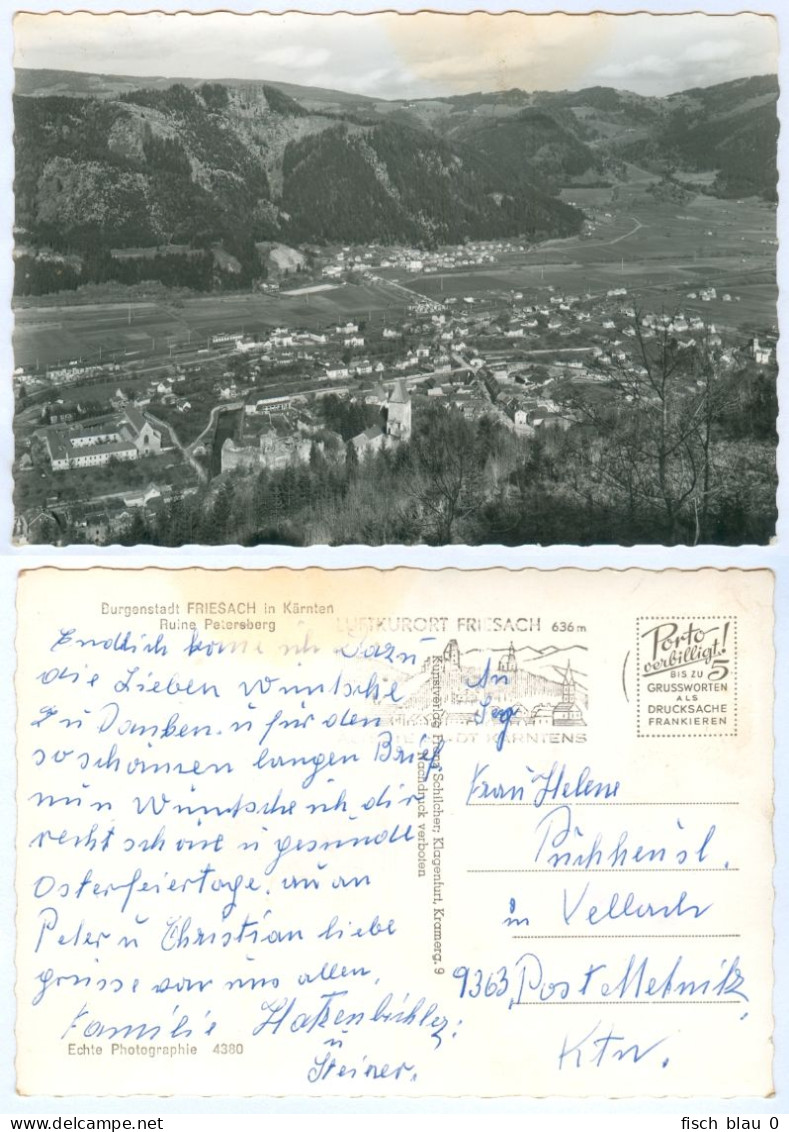 Burgenstadt FRIESACH in Kärnten
Ruine Petersberg
LUFTKURORT FRIESACH 636m
DT KÄRNTENS
Porto
verbilligt!
BIS ZU 5
GRUSSWORTEN
ALS
DRUCKSACHE
FRANKIEREN
Endlich kome ich dazu
die Lieben Wüntsche
Zu Danken. u für den
so schönen langen Brief,
nun Wüntsche ich dir
recht schöne u gesunde
Osterfeiertage. au an
Peter u Christian liebe
grüsse von uns allen,
Familie Hatzenbichler
u
Steiner.
Echte Photographie 4380
Kunstverlag Franz Schilcher, Klagenfurt, Kramerg. 9
Nachdruck verboten
An
Frau Helene
in Vellach
9363 Post Metnitz
Ktn.
fisch blau 0